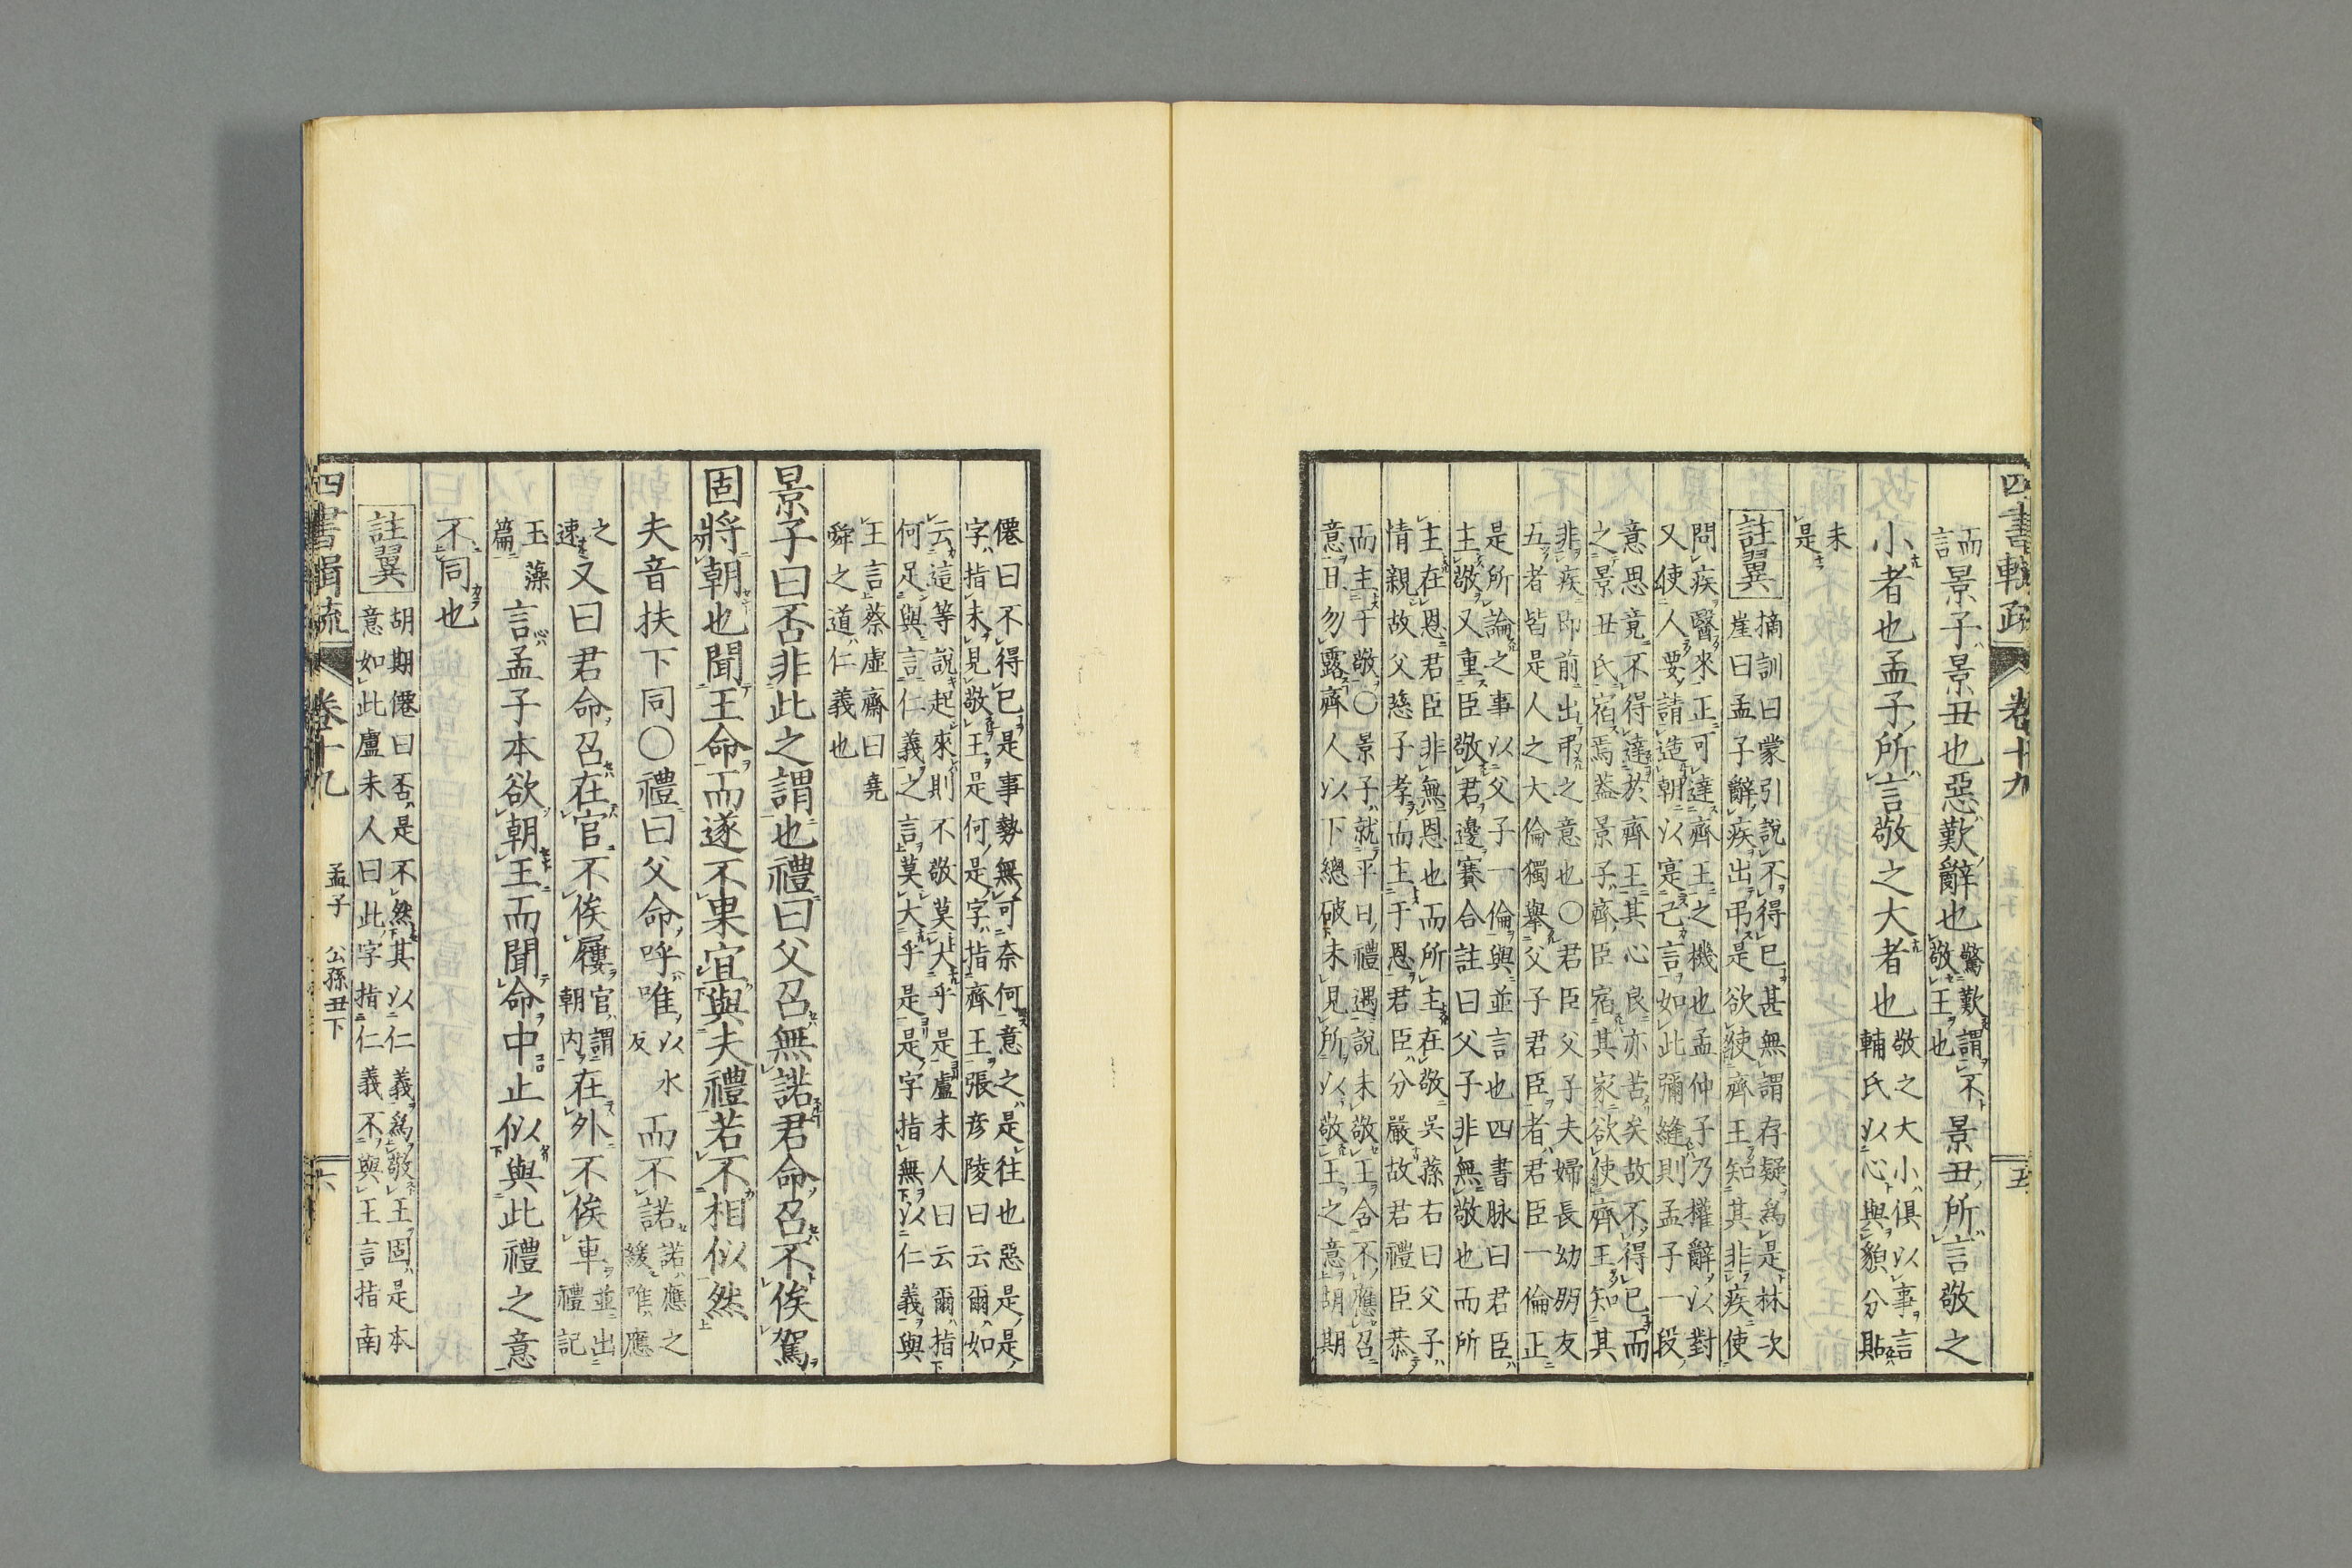 四書輯疏 卷十九 五
而言
景子景丑也惡歎辭也
驚歎謂不
敬王也
景丑所言敬之
小者也孟子所言敬之大者也
敬之大小俱以事言
輔氏以心與貌分貼
未
是
註翼
摘訓曰蒙引說不得已甚無謂存疑爲是林次
崖曰孟子辭疾出弔是欲使齊王知其非疾使
問疾醫來正可達齊王之機也孟仲子乃權辭以對
又使人要請造朝以寔己言如此彌縫則孟子一段
意思竟不得達於齊王其心良亦苦矣故不得已而
之景丑氏宿焉蓋景子齊臣宿其家欲使齊王知其
非疾即前出弔之意也〇君臣父子夫婦長幼朋友
五者皆是人之大倫獨舉父子君臣者君臣一倫正
是所論之事以父子一倫與並言也四書脉曰君臣
主敬又重臣敬君邊賽合註曰父子非無敬也而所
主在恩君臣非無恩也而所主在敬吳蓀右曰父子
情親故父慈子孝而主于恩君臣分嚴故君禮臣恭
而主于敬〇景子就平日禮遇說未敬王含不應召
意且勿露齊人以下總破未見所以敬王之意胡期
僊曰不得已是事勢無可奈何意之是往也惡是是
字指未見敬王是何是字指齊王張彦陵曰云爾如
云這等說起來則不敬莫大乎是盧未人曰云爾指
何足與言仁義之言莫大乎是是字指無以仁義與
王言蔡虛齋曰堯
舜之道仁義也
景子曰否非此之謂也禮曰父召無諾君命召不俟駕
固將朝也聞王命而遂不果宜與夫禮若不相似然
夫音扶下同〇禮曰父命呼唯
以水
反
而不諾
諾應之
緩唯應
之
速
又曰君命召在官不俟屨
官謂
朝内
在外不俟車
並出
禮記
玉藻
篇
言孟子本欲朝王而聞命中止似與此禮之意
不同也
註翼
胡期僊曰否是不然其以仁義爲敬王固是本
意如此盧未人曰此字指仁義不與王言指南
四書輯疏 卷十九 孟子 公孫丑下 六